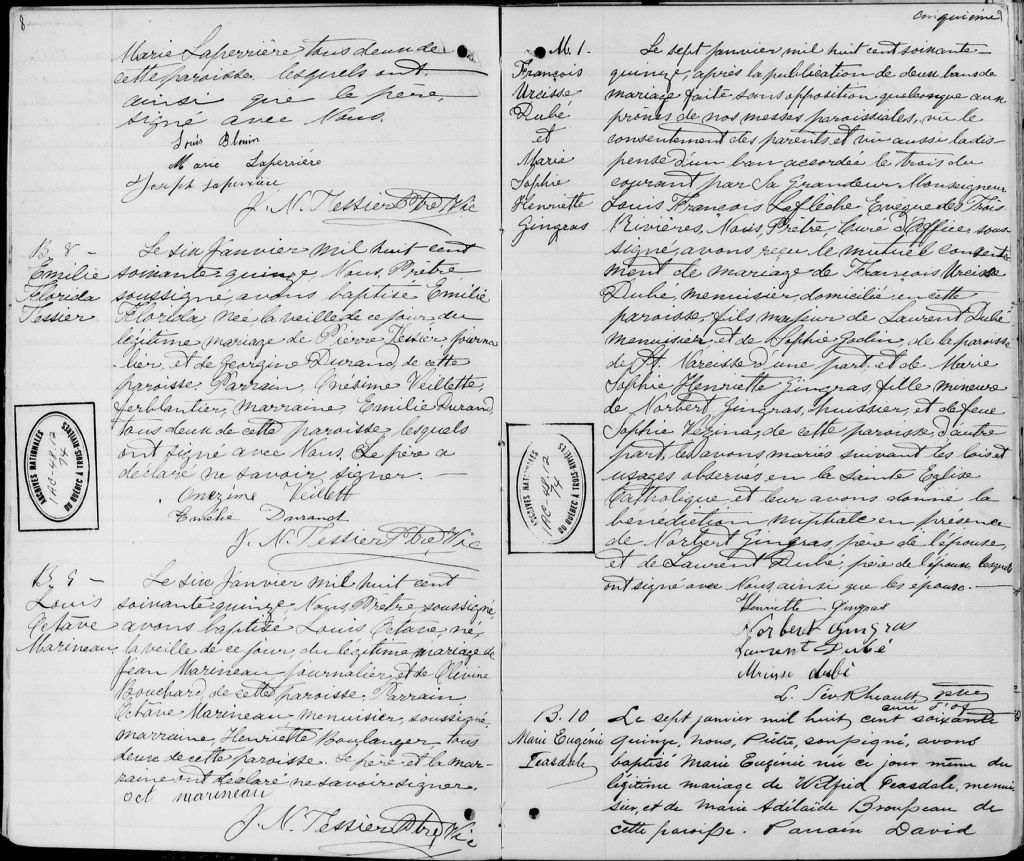 8
Marie Laperrière, tous deux de
cette paroisse lesquels ont,
ainsi que le père,
signé avec Nous.
Louis Blouin
Marie Laperrière
Joseph Laperrière
J. N. Tessier Ptre, Vic
B. 8 –
Emilie
Florida
Tessier
Le six Janvier mil huit cent
soixante-quinze, Nous, Prêtre
soussigné, avons baptisé Emilie
Florida, née la veille de ce jour, du
légitime mariage de Pierre Tessier journa-
lier, et de Georgine Durand, de cette
paroisse. Parrain, Onésime Veillette,
ferblantier, marraine, Emilie Durand,
tous deux de cette paroisse lesquels
ont signé avec Nous. Le père a
déclaré ne savoir signer.
Onezime Veillett
Emélie Durand
J. N. Tessier Ptre, Vic
ARCHIVES NATIONALES
DU QUÉBEC À TROIS-RIVIÈRES
B. 9 –
Louis
Octave
Marineau
Le six Janvier mil huit cent
soixante-quinze, Nous Prêtre soussigné,
avons baptisé Louis Octave, né,
la veille de ce jour, du légitime mariage de
Jean Marineau journalier, et de Olivine
Bouchard, de cette paroisse. Parrain
Octave Marineau, menuisier, soussigné,
marraine, Henriette Boulanger, tous
deux de cette paroisse. Le père et la mar-
raine ont déclaré ne savoir signer.
oct marineau
J. N. Tessier Ptre, Vic
cinquième
M. 1.
François
Urcisse
Dubé
et
Marie
Sophie
Henriette
Gingras
Le sept janvier mil huit cent soixante-
quinze, après la publication de deux bans de
mariage faite sans opposition quelconque aux
prônes de nos messes paroissiales, vu le
consentement des parents et vu aussi la dis-
pense d'un ban accordée le trois du
courant par Sa Grandeur Monseigneur
Louis François Laflèche Evêque des Trois
Rivières, Nous, Prêtre, Curé d'Office, sous-
signé, avons reçu le mutuel consente-
ment de mariage de François Urcisse
Dubé, menuisier, domicilié en cette
paroisse, fils majeur de Laurent Dubé
menuisier et de Sophie Godin, de la paroisse
de St. Narcisse d'une part, et de Marie
Sophie Henriette Gingras, fille mineure
de Norbert Gingras, huissier, et de feue
Sophie Vézina, de cette paroisse, d'autre
part, les avons mariés suivant les lois et
usages observés en la Sainte Eglise
Catholique, et leur avons donné la
bénédiction nuptiale en présence
de Norbert Gingras, père de l'épouse,
et de Laurent Dubé, père de l'époux, lesquels
ont signé avec Nous, ainsi que les époux. —
Henriette Gingras
Norbert Gingras
Laurent Dubé
dubé
L. Sév. Rheault ptre
curé d'of
ARCHIVES NATIONALES
DU QUÉBEC À TROIS-RIVIÈRES
B. 10
Marie Eugénie
Teasdale
Le sept janvier mil huit cent soixante
quinze, nous, Prêtre, soussigné, avons
baptisé Marie Eugénie née ce jour même du
légitime mariage de Wilfrid Teasdale, menui-
sier, et de Marie Adélaïde Brousseau de
cette paroisse. Parrain David